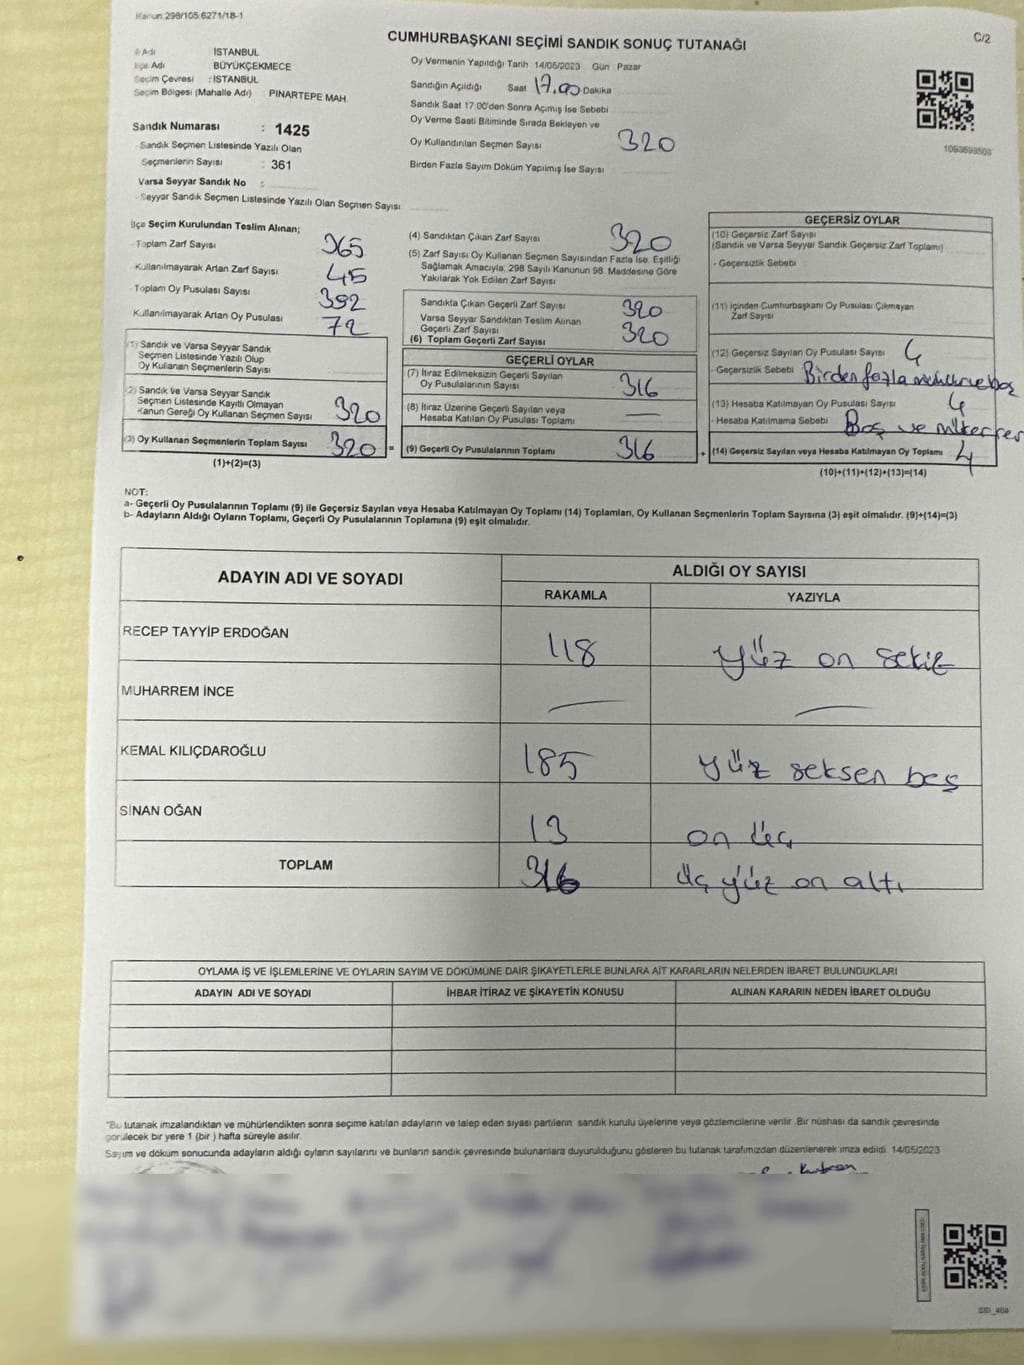 Kanun:298/105.6271/18-1
C/2
CUMHURBAŞKANI SEÇİMİ SANDIK SONUÇ TUTANAĞI
İl Adı İSTANBUL
İlçe Adı BÜYÜKÇEKMECE
Seçim Çevresi : İSTANBUL
Seçim Bölgesi (Mahalle Adı) PINARTEPE MAH.
Sandık Numarası : 1425
Sandık Seçmen Listesinde Yazılı Olan
Seçmenlerin Sayısı : 361
Varsa Seyyar Sandık No :
Seyyar Sandık Seçmen Listesinde Yazılı Olan Seçmen Sayısı
Oy Vermenin Yapıldığı Tarih 14/05/2023 Gün Pazar
Sandığın Açıldığı Saat 17.00 Dakika
Sandık Saat 17:00'den Sonra Açımış İse Sebebi
Oy Verme Saati Bitiminde Sırada Bekleyen ve
Oy Kullandırılan Seçmen Sayısı 320
Birden Fazla Sayım Döküm Yapılmış İse Sayısı
İlçe Seçim Kurulundan Teslim Alınan;
- Toplam Zarf Sayısı 365
- Kullanılmayarak Artan Zarf Sayısı 45
- Toplam Oy Pusulası Sayısı 392
Kullanılmayarak Artan Oy Pusulası 72
(1) Sandık ve Varsa Seyyar Sandık
Seçmen Listesinde Yazılı Olup
Oy Kullanan Seçmenlerin Sayısı
(2) Sandık ve Varsa Seyyar Sandık
Seçmen Listesinde Kayıtlı Olmayan
Kanun Gereği Oy Kullanan Seçmen Sayısı 320
(3) Oy Kullanan Seçmenlerin Toplam Sayısı 320 =
(1)+(2)=(3)
(4) Sandıktan Çıkan Zarf Sayısı 320
(5) Zarf Sayısı Oy Kullanan Seçmen Sayısından Fazla İse, Eşitliği
Sağlamak Amacıyla; 298 Sayılı Kanunun 98. Maddesine Göre
Yakılarak Yok Edilen Zarf Sayısı
Sandıkta Çıkan Geçerli Zarf Sayısı 320
Varsa Seyyar Sandıktan Teslim Alınan
Geçerli Zarf Sayısı
(6) Toplam Geçerli Zarf Sayısı 320
GEÇERLİ OYLAR
(7) İtiraz Edilmeksizin Geçerli Sayılan
Oy Pusulalarının Sayısı 316
(8) İtiraz Üzerine Geçerli Sayılan veya
Hesaba Katılan Oy Pusulası Toplamı —
(9) Geçerli Oy Pusulalarının Toplamı 316 +
GEÇERSİZ OYLAR
(10) Geçersiz Zarf Sayısı
(Sandık ve Varsa Seyyar Sandık Geçersiz Zarf Toplamı)
- Geçersizlik Sebebi
(11) İçinden Cumhurbaşkanı Oy Pusulası Çıkmayan
Zarf Sayısı
(12) Geçersiz Sayılan Oy Pusulası Sayısı 4
- Geçersizlik Sebebi Birden fazla
(13) Hesaba Katılmayan Oy Pusulası Sayısı 4
- Hesaba Katılmama Sebebi Boş ve mükerrer
(14) Geçersiz Sayılan veya Hesaba Katılmayan Oy Toplamı 4
(10)+(11)+(12)+(13)=(14)
NOT:
a- Geçerli Oy Pusulalarının Toplamı (9) ile Geçersiz Sayılan veya Hesaba Katılmayan Oy Toplamı (14) Toplamları, Oy Kullanan Seçmenlerin Toplam Sayısına (3) eşit olmalıdır. (9)+(14)=(3)
b- Adayların Aldığı Oyların Toplamı, Geçerli Oy Pusulalarının Toplamına (9) eşit olmalıdır.
ADAYIN ADI VE SOYADI ALDIĞI OY SAYISI
RAKAMLA YAZIYLA
RECEP TAYYİP ERDOĞAN 118 yüz on sekiz
MUHARREM İNCE — —
KEMAL KILIÇDAROĞLU 185 yüz seksen beş
SİNAN OĞAN 13 on üç
TOPLAM 316 üç yüz on altı
OYLAMA İŞ VE İŞLEMLERİNE VE OYLARIN SAYIM VE DÖKÜMÜNE DAİR ŞİKAYETLERLE BUNLARA AİT KARARLARIN NELERDEN İBARET BULUNDUKLARI
ADAYIN ADI VE SOYADI İHBAR İTİRAZ VE ŞİKAYETİN KONUSU ALINAN KARARIN NEDEN İBARET OLDUĞU
"Bu tutanak imzalandıktan ve mühürlendikten sonra seçime katılan adayların ve talep eden siyasi partilerin sandık kurulu üyelerine veya gözlemcilerine verilir. Bir nüshası da sandık çevresinde
görülecek bir yere 1 (bir) hafta süreyle asılır.
Sayım ve döküm sonucunda adayların aldığı oyların sayılarını ve bunların sandık çevresinde bulunanlara duyurulduğunu gösteren bu tutanak tarafımızdan düzenlenerek imza edildi. 14/05/2023